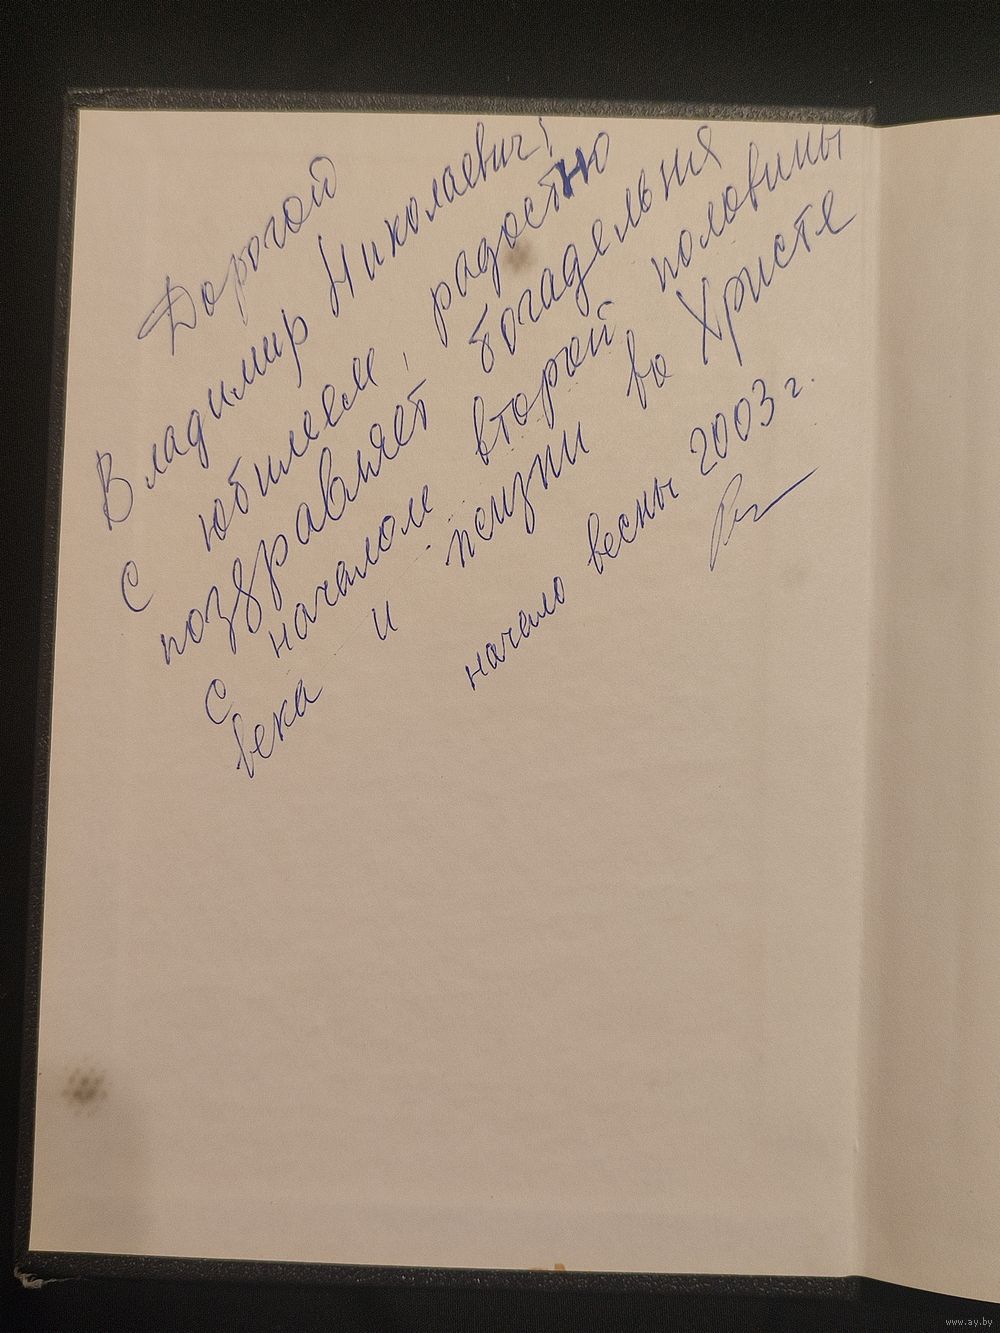 Дорогой
Владимир Николаевич!
С юбилеем, радостью
поздравляет богадельня
С началом второй половины
века и жизни во Христе
начало весны 2003 г.
www.ay.by